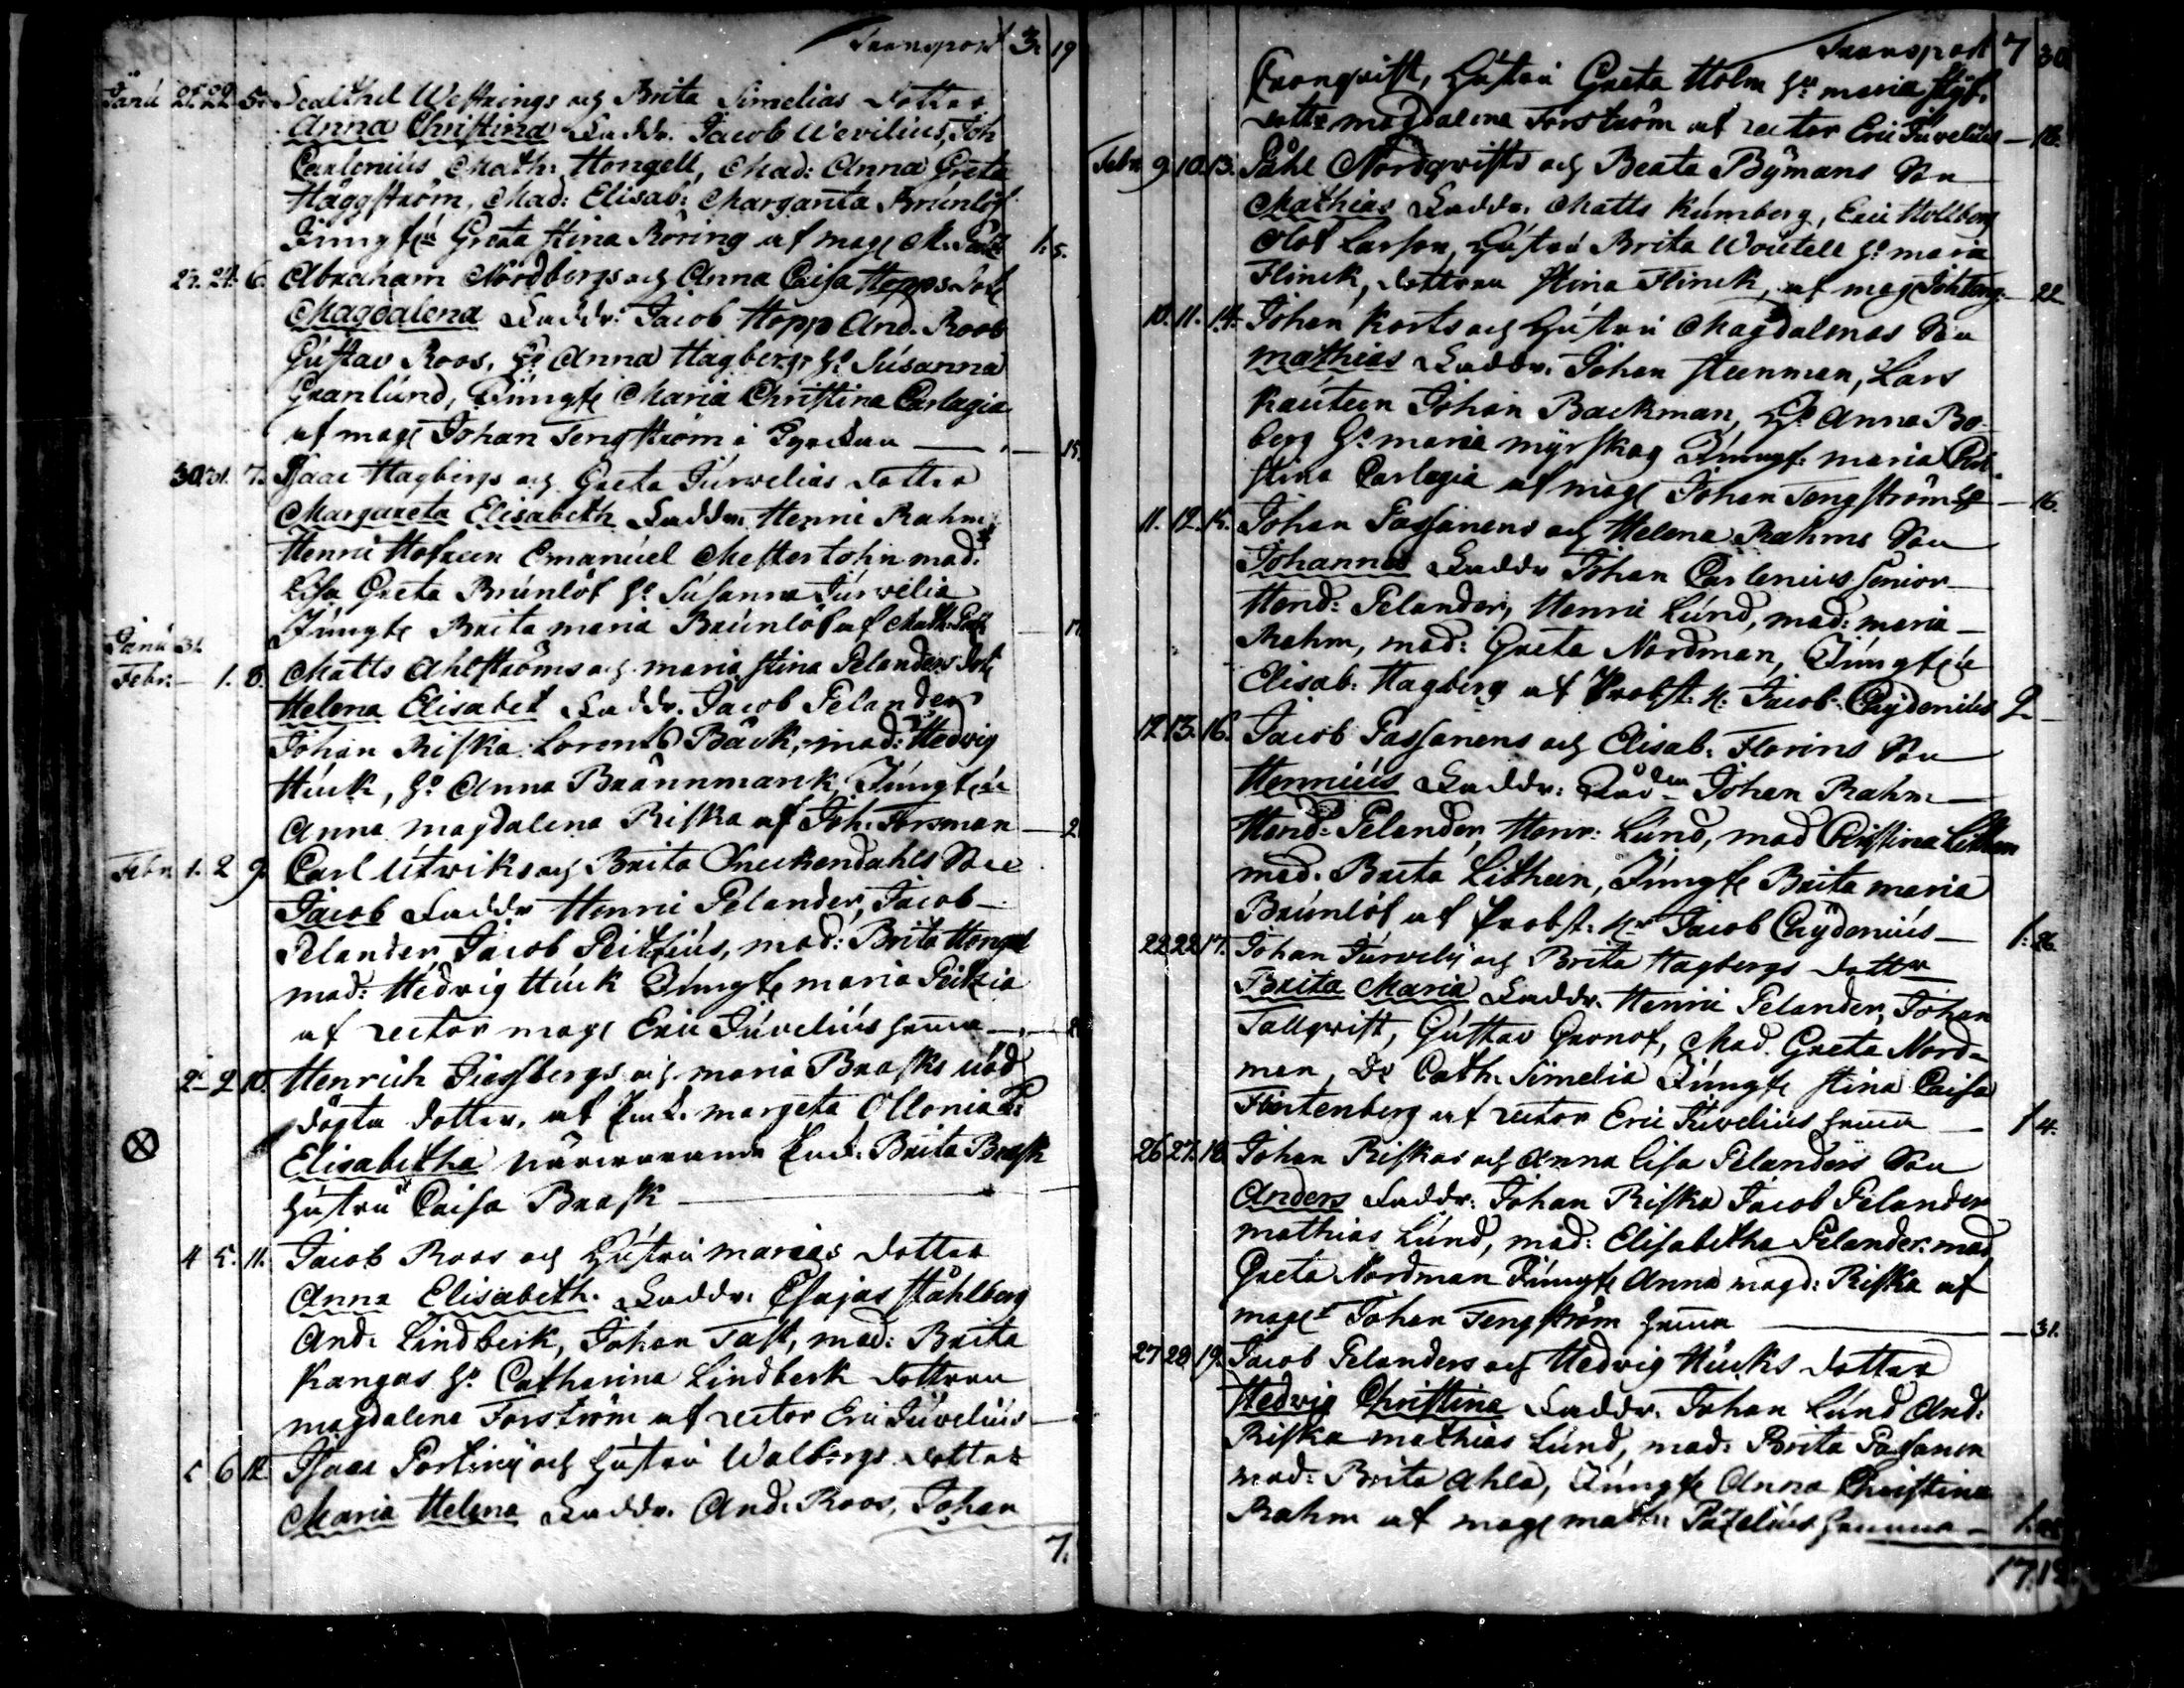 Transport 3. 19
Janu 21. 22 5. Westrings och Brita Simelias dotter
Anna Christina Faddr. Jacob Wevilius, Joh
Carlenius Math: Hongell, Mad: Anna Greta
Häggström, Mad: Elisab: Margareta Brunlöf
Jungfru Greta Stina Röring af mag M. 1. 5.
27. 6. Abraham Nordbergs och Anna Caisa Hopps dott
Magdalena Faddr. Jacob Hopp And. Roos
Gustav Roos, H: Anna Hagberg, H: Susanna
Granlund, Jungf Maria Christina Carlagia
af mag Johan Tengström i 15.
30. 31. 7. Isaac Hagbergs och Greta Juvelias dotter
Margareta Elisabeth Faddr. Henric Rahm
Henric Hofreen Emanuel Mestertohn mad:
Lisa Greta Brunlöf H: Susanna Juvelia
Jungfr Brita Maria Brunlöf af Math:
Janu 31.
Febr: 1. 8. Matts Ahlströms och Maria Stina Pelanders dott
Helena Elisabet Faddr. Jacob Pelander
Johan Riska Lorents Bäck, mad: Hedvig
Huck, H: Anna Brännmark, Jungfru
Anna Magdalena Riska af Joh: Forsman 2
Febr 1. 2 9. Carl Utwiks och Brita Sneckendahls Son
Jacob Faddr Henric Pelander, Jacob
Pelander Jacob Peitzius, mad: Brita Hongel
mad: Hedvig Huck Jungfr Maria Peitzia
af rector mag Eric Juvelius hema
2 2 10. Henrich och Maria Brasks nöd
döpta dotter, af Enk. Margeta Ollonia
Elisabetha närwarande Enk. Brita Brask
hustru Caisa Brask
4 5. 11. Jacob Roos och Hustru Marias dotter
Anna Elisabeth. Faddr. Esajas Ståhlberg
And: Lindbeck, Johan Tast, mad: Brita
Kangas H: Catharina Lindbeck dottren
Magdalena Forström af rector Eric Juvelius
5 6 12. Isaac och hustru Walborgs dotter
Maria Helena Faddr. And: Roos, Johan
7.
Transport 7 30
Cronqvist, Hustru Greta Holm H: Maria
dottr Magdalena Forström af rector Eric Juvelius 18.
Febr 9. 10. 13. Påhl Nordqvists och Beata Bymans Son
Mathias Faddr. Matts Kumberg, Eric Hollberg
Olof Larson, Hustru Brita Woutell H: Maria
Flinck, dottren Stina Flinck, af mag Joh Teng 22
10. 11. 14. Johan Korts och Hustru Magdalenas Son
Mathias Faddr. Johan Steenman, Lars
Kauteen Johan Backman, H: Anna Bo
berg H: Maria Myrskog Jungf: Maria Chri
stina Carlagia af mag Johan Tengström 16.
11. 12. 15. Johan Passanens och Helena Rahms Son
Johannes Faddr Johan Carlenius Senior
Hend: Pelander, Henric Lund, mad: Maria
Rahm, mad: Greta Nordman, Jungfru
Elisab: Hagberg af Probst: H: Jacob Chydenius 2
12 13. 16. Jacob Passanens och Elisab: Florins Son
Henricus Faddr: Rådm Johan Rahm
Hend: Pelander, Henr: Lund, mad Christina Litheen
mad: Brita Litheen, Jungfr Brita Maria
Brunlöf af Probst: Hr Jacob Chydenius 1. 26.
22 22 17. Johan Juvelii och Brita Hagbergs dotter
Brita Maria Faddr. Henric Pelander, Johan
Tallqvist, Gustav Gronof, Mad. Greta Nord-
man, Do Cath: Simelia Jungfr Stina Caisa
Flintenberg af rector Eric Juvelius hema 1 4.
26 27. 18. Johan Riskas och Anna Lisa Pelanders Son
Anders Faddr: Johan Riska Jacob Pelander
Mathias Lund, mad: Elisabetha Pelander. mad
Greta Nordman Jungfr Anna Magd: Riska af
mag Johan Tengström hema 31.
27 28 19. Jacob Pelanders och Hedvig Hucks dotter
Hedvig Christina Faddr. Johan Lund And:
Riska Mathias Lund, mad: Brita Passanen
mad: Brita Ahla, Jungfr Anna Christina
Rahm af mag Math: Pazelius hemma
17. 18